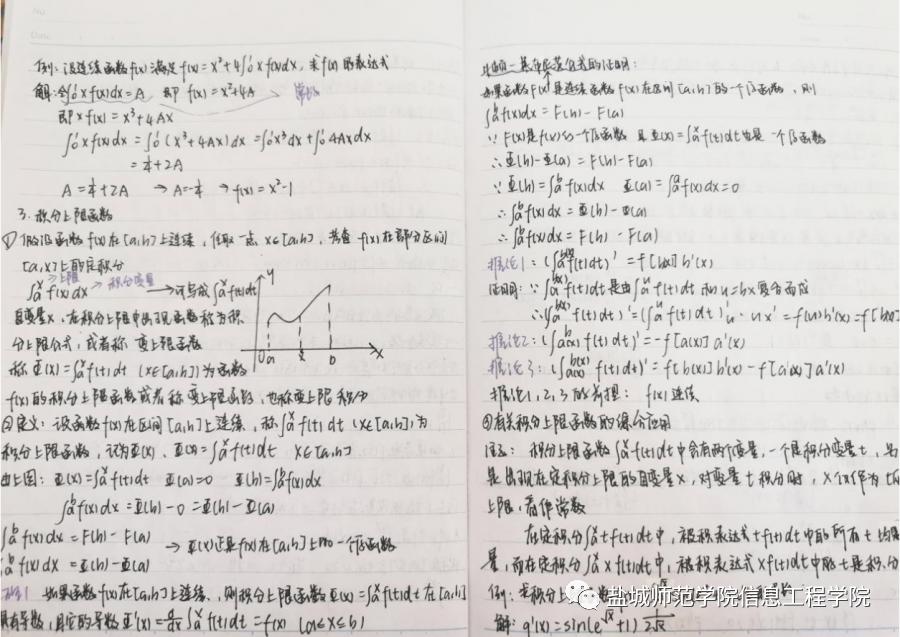 例:设连续函数f(x)满足f(x)=x²+4∫₀¹xf(x)dx,求f(x)的表达式
解:令∫₀¹xf(x)dx=A 即 f(x)=x²+4A 常数
即xf(x)=x³+4Ax
∫₀¹xf(x)dx=∫₀¹(x³+4Ax)dx=∫₀¹x³dx+∫₀¹4Axdx
=¼+2A
A=¼+2A → A=-¼ → f(x)=x²-1
3.积分上限函数
①假设函数f(x)在[a,b]上连续,任取一点x∈[a,b],考查f(x)在部分区间
[a,x]上的定积分
→上限 → 积分变量
∫ₐˣf(x)dx → 可写成∫ₐˣf(t)dt
自变量x,在积分上限中出现函数称为积
分上限公式,或者称变上限函数
称Φ(x)=∫ₐˣf(t)dt (x∈[a,b])为函数
y
0 a x b x
f(x)的积分上限函数或者称变上限函数,也称变上限积分
②定义:设函数f(x)在区间[a,b]上连续,称∫ₐˣf(t)dt(x∈[a,b])为
积分上限函数,记为Φ(x),Φ(x)=∫ₐˣf(t)dt x∈[a,b]
由上图:Φ(x)=∫ₐˣf(t)dt Φ(a)=0 Φ(b)=∫ₐᵇf(x)dx
∫ₐᵇf(x)dx=Φ(b)-0=Φ(b)-Φ(a)
∫ₐᵇf(x)dx=F(b)-F(a)
→Φ(x)正是f(x)在[a,b]上的一个原函数
∫ₐᵇf(x)dx=Φ(b)-Φ(a)
如果函数f(x)在[a,b]上连续,则积分上限函数Φ(x)=∫ₐˣf(t)dt在[a,b]
具有导数,且它的导数Φ'(x)=d/dx∫ₐˣf(t)dt=f(x) (a≤x≤b)
公式的证明:
如果函数F(x)是连续函数f(x)在区间[a,b]的一个原函数,则
∫ₐᵇf(x)dx=F(b)-F(a)
∵F(x)是f(x)的一个原函数 且Φ(x)=∫ₐˣf(t)dt也是一个原函数
∴Φ(b)-Φ(a)=F(b)-F(a)
∵Φ(b)=∫ₐᵇf(x)dx Φ(a)=∫ₐᵃf(x)dx=0
∴∫ₐᵇf(x)dx=Φ(b)-Φ(a)
∴∫ₐᵇf(x)dx=F(b)-F(a)
推论1:(∫ₐᵇ⁽ˣ⁾f(t)dt)'=f[b(x)]b'(x)
证明:∵∫ₐᵇ⁽ˣ⁾f(t)dt是由∫ₐᵘf(t)dt和u=b(x)复合而成
∴(∫ₐᵇ⁽ˣ⁾f(t)dt)'=(∫ₐᵘf(t)dt)'u·ux'=f(u)b'(x)=f[b(x)]
推论2:(∫ₐ₍ₓ₎ᵇf(t)dt)'=-f[a(x)]a'(x)
推论3:(∫ₐ₍ₓ₎ᵇ⁽ˣ⁾f(t)dt)'=f[b(x)]b'(x)-f[a(x)]a'(x)
推论1,2,3的前提: f(x)连续
②有关积分上限函数的综合应用
注意:积分上限函数∫ₐˣf(t)dt中含有两个变量,一个是积分变量t,另
是出现在定积分上限的自变量x,对变量t积分时,x个作为t的
上限,看作常数
在定积分∫ₐˣtf(t)dt中,被积表达式tf(t)dt中的所有t均是
量,而在定积分∫ₐˣxf(t)dt中,被积表达式xf(t)dt中的t是积分
例:求积分上
解:φ'(x)=sin(e^√x+1)·1/2√x
盐城师范学院信息工程学院